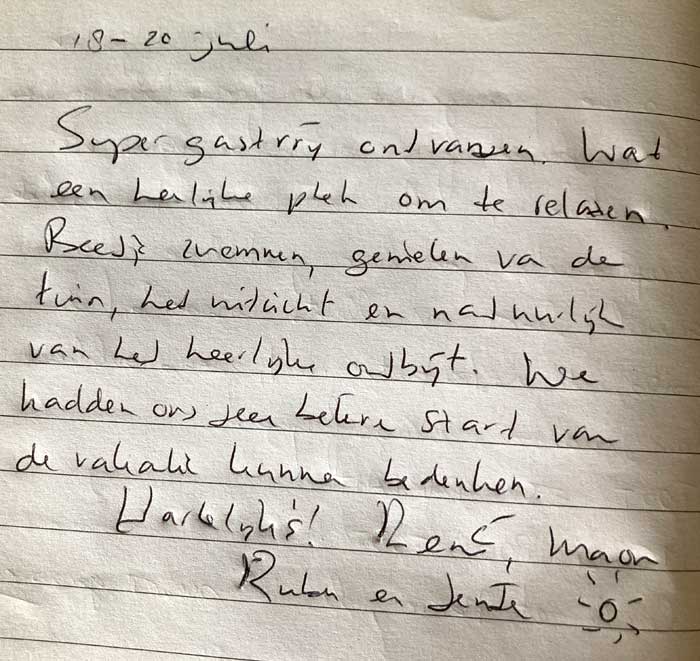 18-20 juli
Super gastvrij ontvangen. Wat
een heerlijke plek om te relaxen.
Beetje zwemmen, genieten va de
tuin, het uitzicht en natuurlijk
van het heerlijke ontbijt. We
hadden ons geen betere start van
de vakatie kunnen bedenken.
Hartelijks! René,
Ruben en Jente